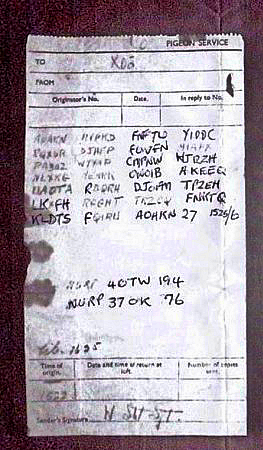 PIGEON SERVICE
TO XO2
FROM
Originator's No. Date. In reply to No.
AOAKN HVPKD FNFTW YIDDC
RQXIR DJHFP GOVFN MIAPX
PABUZ WYYNP CMPNW HJRZH
NLXKG MEMKK ONOIB AKEEQ
UAOTA RBQRH DJOFM TPZEH
LKXFH RGGHT JRZCQ FNKTQ
KLDTS FQIRU AOAKN 27 1525/6
NURP 40TW 194
NURP 37OK 76
lib. 1625
Time of origin. Date and time of return at loft. Number of copies sent.
1522
Sender's Signature W Stot Sjt